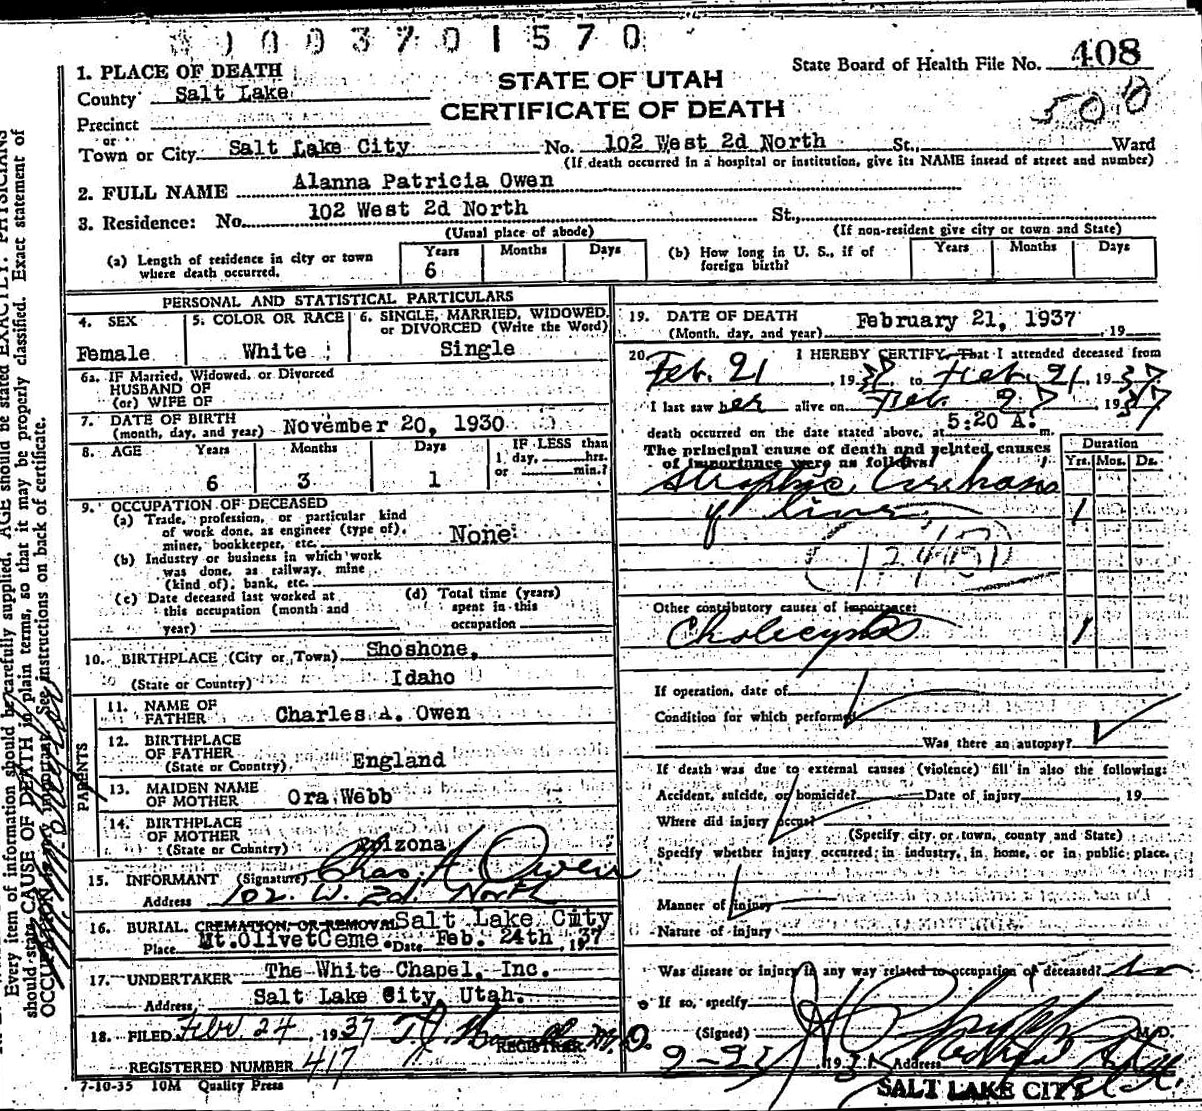 3 1 0 0 3 7 0 1 5 7 0
State Board of Health File No. 408
500
STATE OF UTAH
CERTIFICATE OF DEATH
1. PLACE OF DEATH
County Salt Lake
Precinct
or
Town or City Salt Lake City No. 102 West 2d North St., Ward
(If death occurred in a hospital or institution, give its NAME insead of street and number)
2. FULL NAME Alanna Patricia Owen
3. Residence: No. 102 West 2d North St.,
(Usual place of abode) (If non-resident give city or town and State)
(a) Length of residence in city or town where death occurred. Years 6 Months Days
(b) How long in U. S., if of foreign birth? Years Months Days
PERSONAL AND STATISTICAL PARTICULARS
4. SEX
Female
5. COLOR OR RACE
White
6. SINGLE, MARRIED, WIDOWED,
or DIVORCED (Write the Word)
Single
6a. IF Married, Widowed, or Divorced
HUSBAND OF
(or) WIFE OF
7. DATE OF BIRTH
(month, day, and year) November 20, 1930
8. AGE Years Months Days IF LESS than
1 day, hrs.
or min.?
6 3 1
9. OCCUPATION OF DECEASED
(a) Trade, profession, or particular kind
of work done, as engineer (type of),
miner, bookkeeper, etc. None
(b) Industry or business in which work
was done, as railway, mine
(kind of), bank, etc.
(c) Date deceased last worked at
this occupation (month and
year)
(d) Total time (years)
spent in this
occupation
10. BIRTHPLACE (City or Town) Shoshone,
(State or Country) Idaho
PARENTS
11. NAME OF
FATHER Charles A. Owen
12. BIRTHPLACE
OF FATHER
(State or Country) England
13. MAIDEN NAME
OF MOTHER Ora Webb
14. BIRTHPLACE
OF MOTHER
(State or Country) Arizona
15. INFORMANT (Signature) Chas A Owen
Address 102. W. 2d. North
16. BURIAL, CREMATION, OR REMOVAL Salt Lake City
Place Mt. Olivet Ceme. Date Feb. 24th, 1937
17. UNDERTAKER The White Chapel, Inc.
Address Salt Lake City, Utah.
18. FILED Feb. 24, 1937 M.D.
REGISTRAR
REGISTERED NUMBER 417
7-10-35 10M Quality Press
19. DATE OF DEATH
(Month, day, and year) February 21, 1937, 19
20. I HEREBY CERTIFY, That I attended deceased from
Feb. 21, 1937 to Feb. 21, 1937
I last saw her alive on Feb 1937
death occurred on the date stated above, at 5:20 A. m.
The principal cause of death and related causes
of importance were as follows:
Duration
Yrs. Mos. Ds.
Atrophic Cirrhosis
of liver 1
Other contributory causes of importance:
1
If operation, date of
Condition for which performed
Was there an autopsy?
If death was due to external causes (violence) fill in also the following:
Accident, suicide, or homicide? Date of injury 19
Where did injury occur?
(Specify city or town, county and State)
Specify whether injury occurred in industry, in home, or in public place.
Manner of injury
Nature of injury
Was disease or injury in any way related to occupation of deceased? no
If so, specify
(Signed) M.D.
Address
SALT LAKE CITY
Every item of information should be carefully supplied. AGE should be stated EXACTLY. PHYSICIANS
should state CAUSE OF DEATH in plain terms, so that it may be properly classified. Exact statement of
OCCUPATION is very important. See instructions on back of certificate.